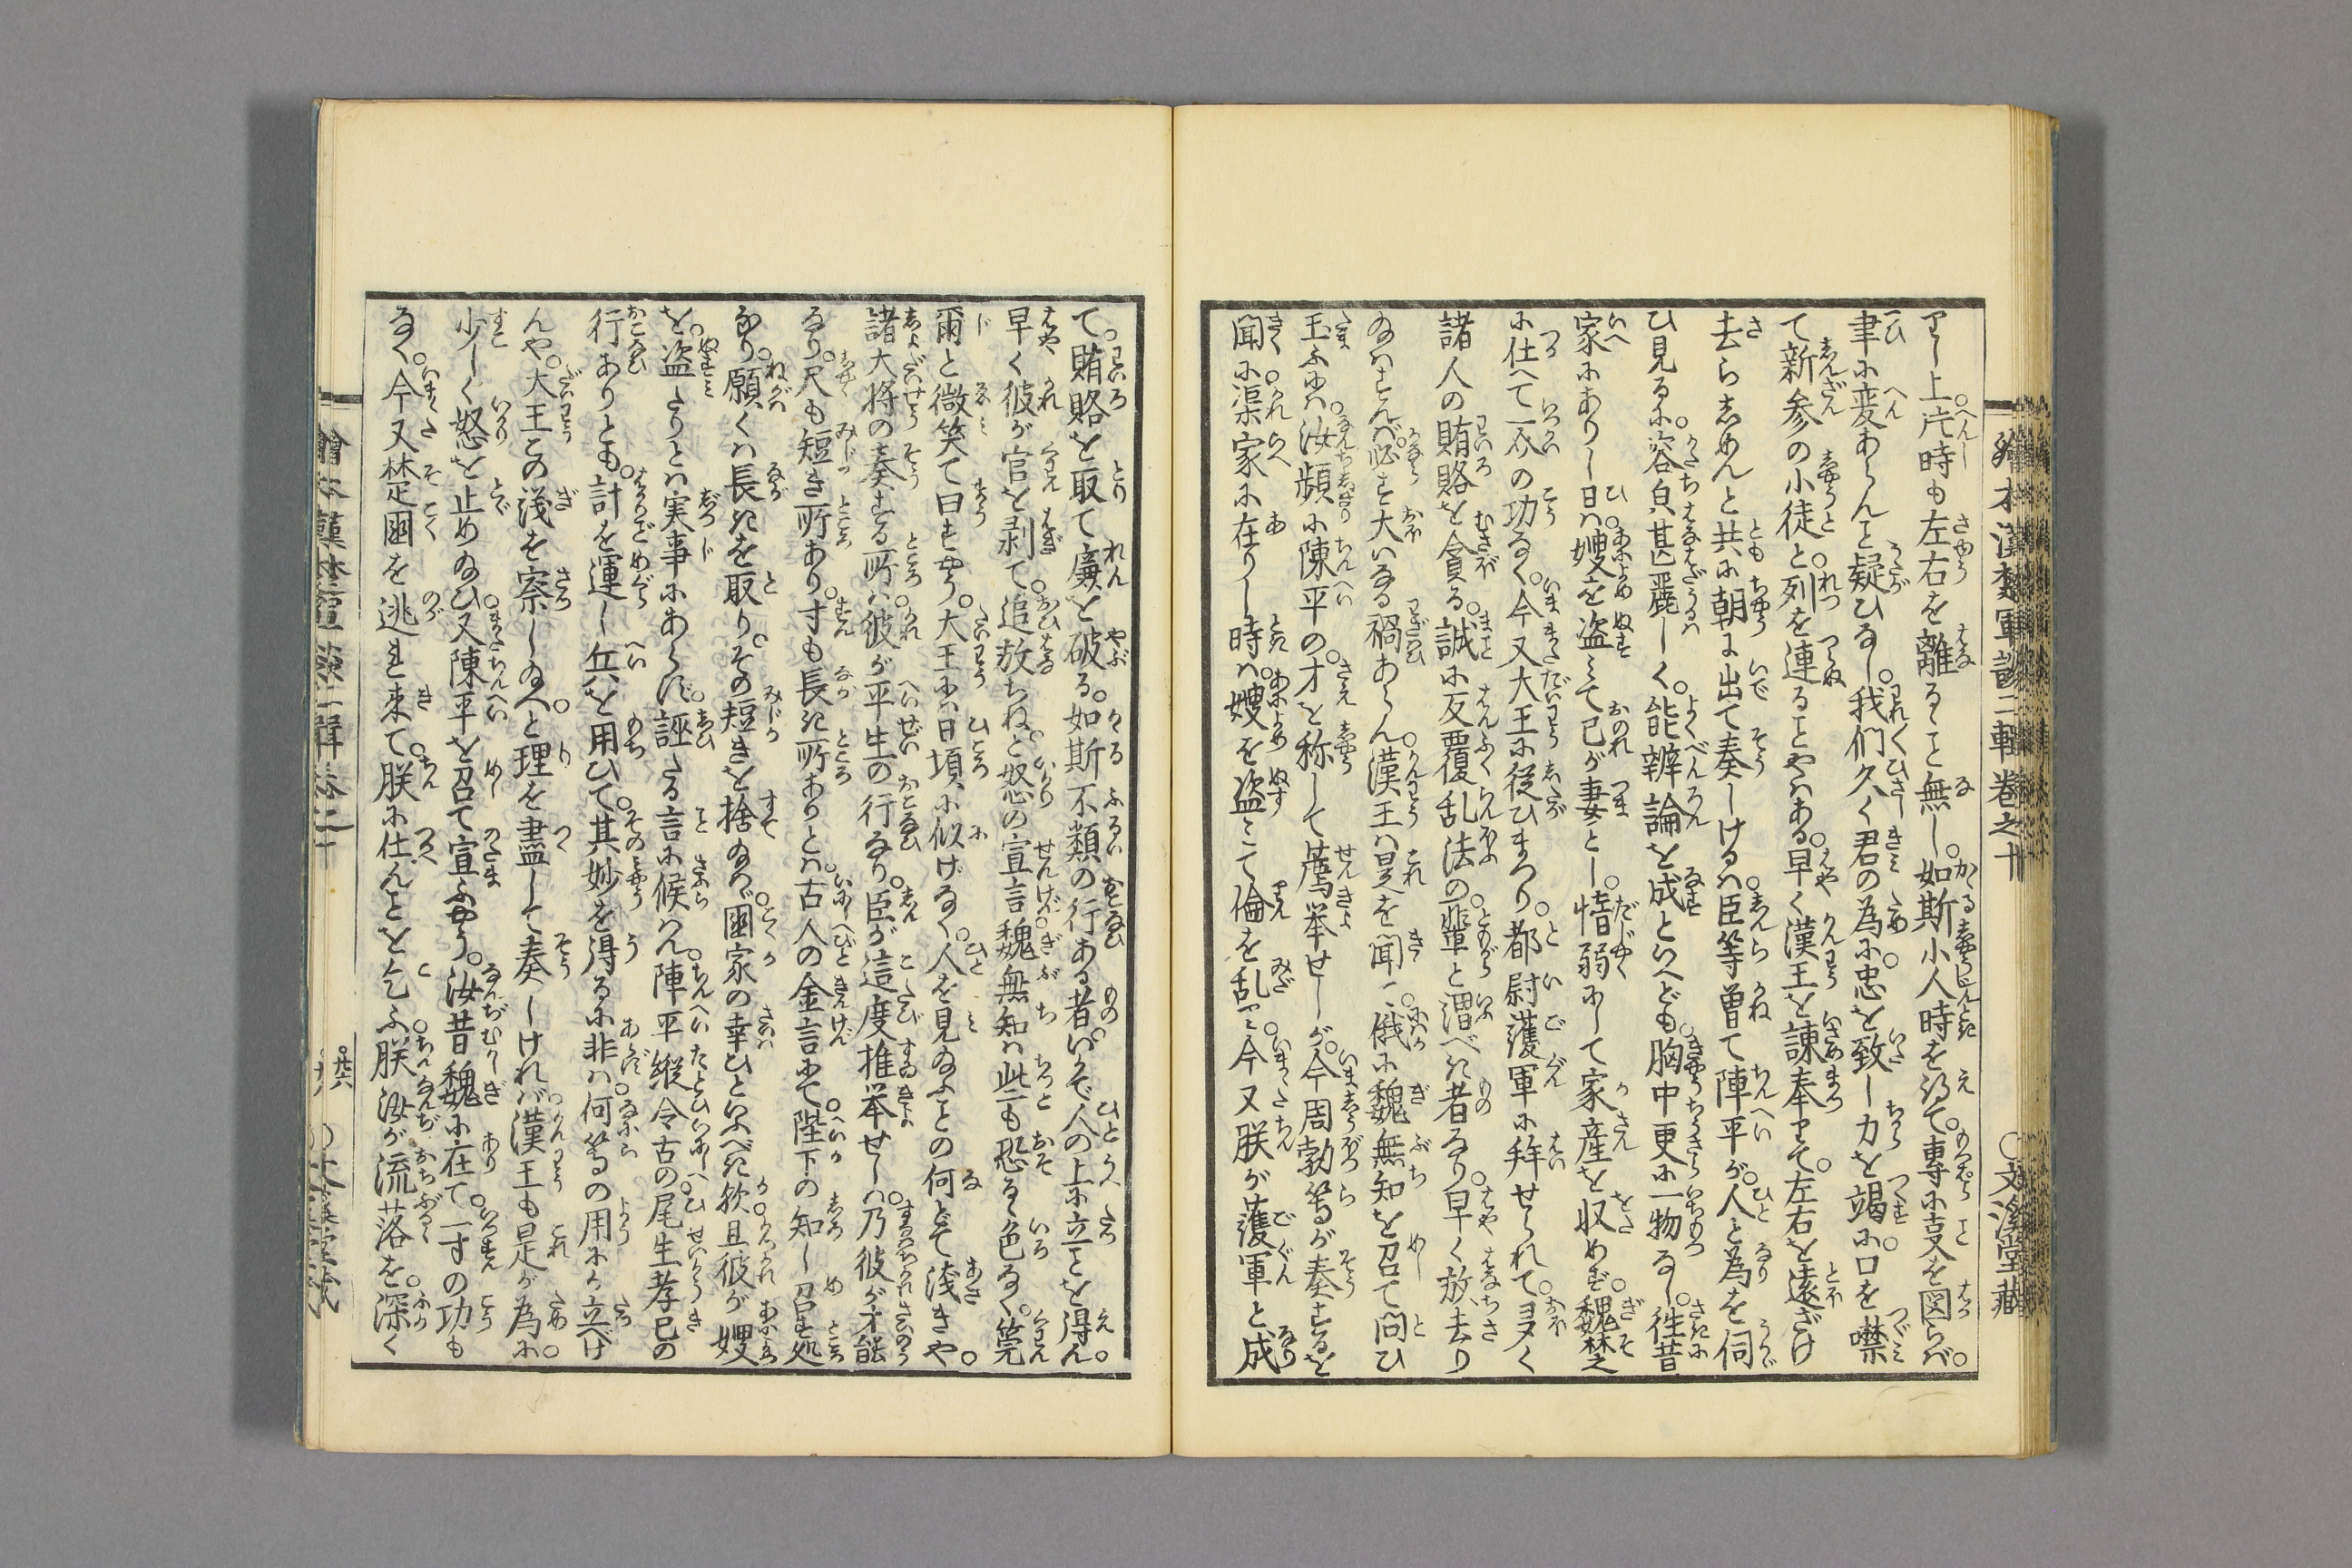 繪本漢楚軍談二輯卷之十
○文溪堂藏
上片時も左右を離ること無し。如斯小人時を得て。専に叓を図らバ。
聿に変あらんと疑ひなし。我們久く君の為に。忠を致し力を竭に。口を噤
て新参の小徒と。列を連ることやハある。早く漢王を諌奉りて。左右を遠ざけ
去らしめんと共に朝に出て奏しけるハ。臣等曽て陳平が。人と為を伺
ひ見るに。容皃甚麗しく。能辨論を成といへども。胸中更に一物なし。徃昔
家にありし日ハ。嫂を盗ミて己が妻とし。惰弱にして家産を収めず。魏楚
に仕へて一介の功なく。今又大王に従ひまつり。都尉護軍に拜せられて。多く
諸人の賄賂を貪る。誠に反覆乱法の輩と謂べき者なり。早く放去り
給ハずんバ。必ず大いなる禍あらん。漢王ハ是を聞。俄に魏無知を召て問ひ
玉ふにハ。汝頻に陳平の。才を称して薦举せしが。今周勃等が奏するを
聞に。渠家に在りし時ハ。嫂を盗ミて倫を乱し。今又朕が護軍と成
て。賄賂を取て廉を破る。如斯不類の行ある者。いかで人の上に立ことを得ん。
早く彼が官を剥て。追放ちねと。怒の宣言。魏無知ハ此も恐るゝ色なく。莞
爾と微笑て曰すやう。大王にハ日頃に似げなく。人を見給ふことの何どて浅きや。
諸大将の奏する所ハ。彼が平生の行なり。臣が這度推举せしハ。乃彼が才能
なり。尺も短き所あり。寸も長き所ありとハ。古人の金言にて。陛下の知し召す処
なり。願くハ長きを取り。その短きを捨給ハゞ。國家の幸ひといふべき歟。且彼が嫂
を。盗しりとハ実事にあらず。誣たる言に候ハん。陳平縦令古の。尾生孝已の
行ありとも。計を運し兵を用ひて。其妙を得るに非ハ。何等の用にか立べけ
んや。大王この浅を察し給へ。と理を盡して奏しけれバ。漢王も是が為に。
少しく怒を止め給ひ。又陳平を召て宣ふやう。汝昔魏に在て。一寸の功も
なく。今又楚國を逃れ来て。朕に仕んことを乞ふ。朕汝が流落を。深く